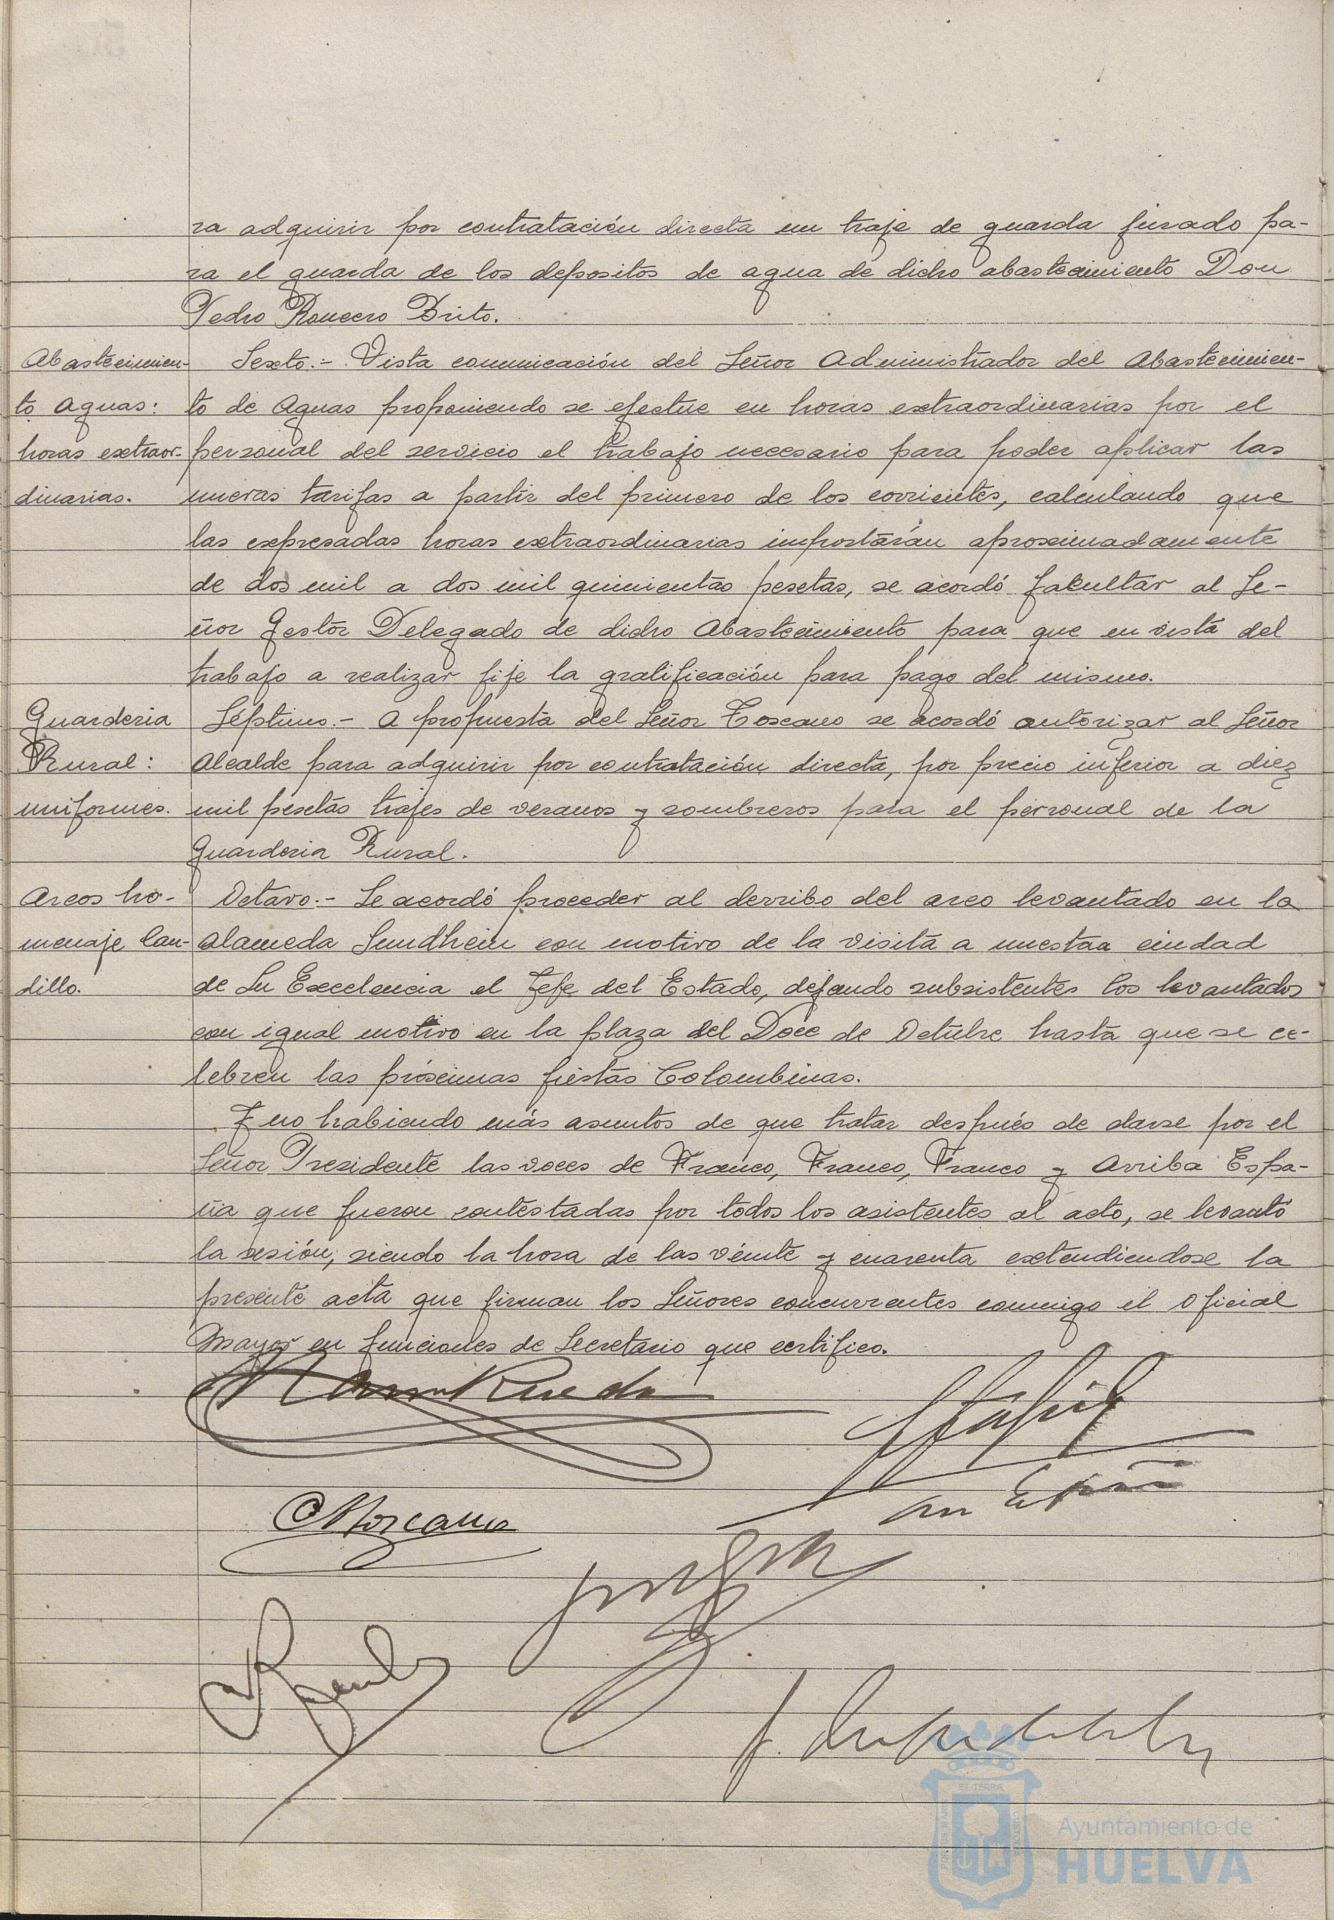 ra adquirir por contratación directa un traje de guarda jurado pa-
ra el guarda de los depositos de agua de dicho abastecimiento Don
Pedro Romero Brito.
Abastecimien-
to aguas:
horas extraor-
dinarias.
Sexto.- Vista comunicación del Señor Administrador del Abastecimien-
to de Aguas proponiendo se efectue en horas extraordinarias por el
personal del servicio el trabajo necesario para poder aplicar las
nuevas tarifas a partir del primero de los corrientes, calculando que
las expresadas horas extraordinarias importarán aproximadamente
de dos mil a dos mil quinientas pesetas, se acordó facultar al Se-
ñor Gestor Delegado de dicho Abastecimiento para que en vista del
trabajo a realizar fije la gratificación para pago del mismo.
Guarderia
Rural:
uniformes.
Séptimo.- A propuesta del Señor Toscano se acordó autorizar al Señor
Alcalde para adquirir por contratación directa, por precio inferior a diez
mil pesetas trajes de veranos y sombreros para el personal de la
Guarderia Rural.
Arcos ho-
menaje Cau-
dillo.
Octavo.- Se acordó proceder al derribo del arco levantado en la
Alameda Sundhein con motivo de la visita a nuestra ciudad
de Su Excelencia el Jefe del Estado, dejando subsistentes los levantados
con igual motivo en la plaza del Doce de Octubre hasta que se ce-
lebren las próximas fiestas Colombinas.
Y no habiendo más asuntos de que tratar después de darse por el
Señor Presidente las voces de Franco, Franco, Franco y Arriba Espa-
ña que fueron contestadas por todos los asistentes al acto, se levantó
la sesión, siendo la hora de las veinte y cuarenta extendiendose la
presente acta que firman los Señores concurrentes conmigo el Oficial
Mayor en funciones de Secretario que certifico.
Rueda
Toscano
Ayuntamiento de
HUELVA